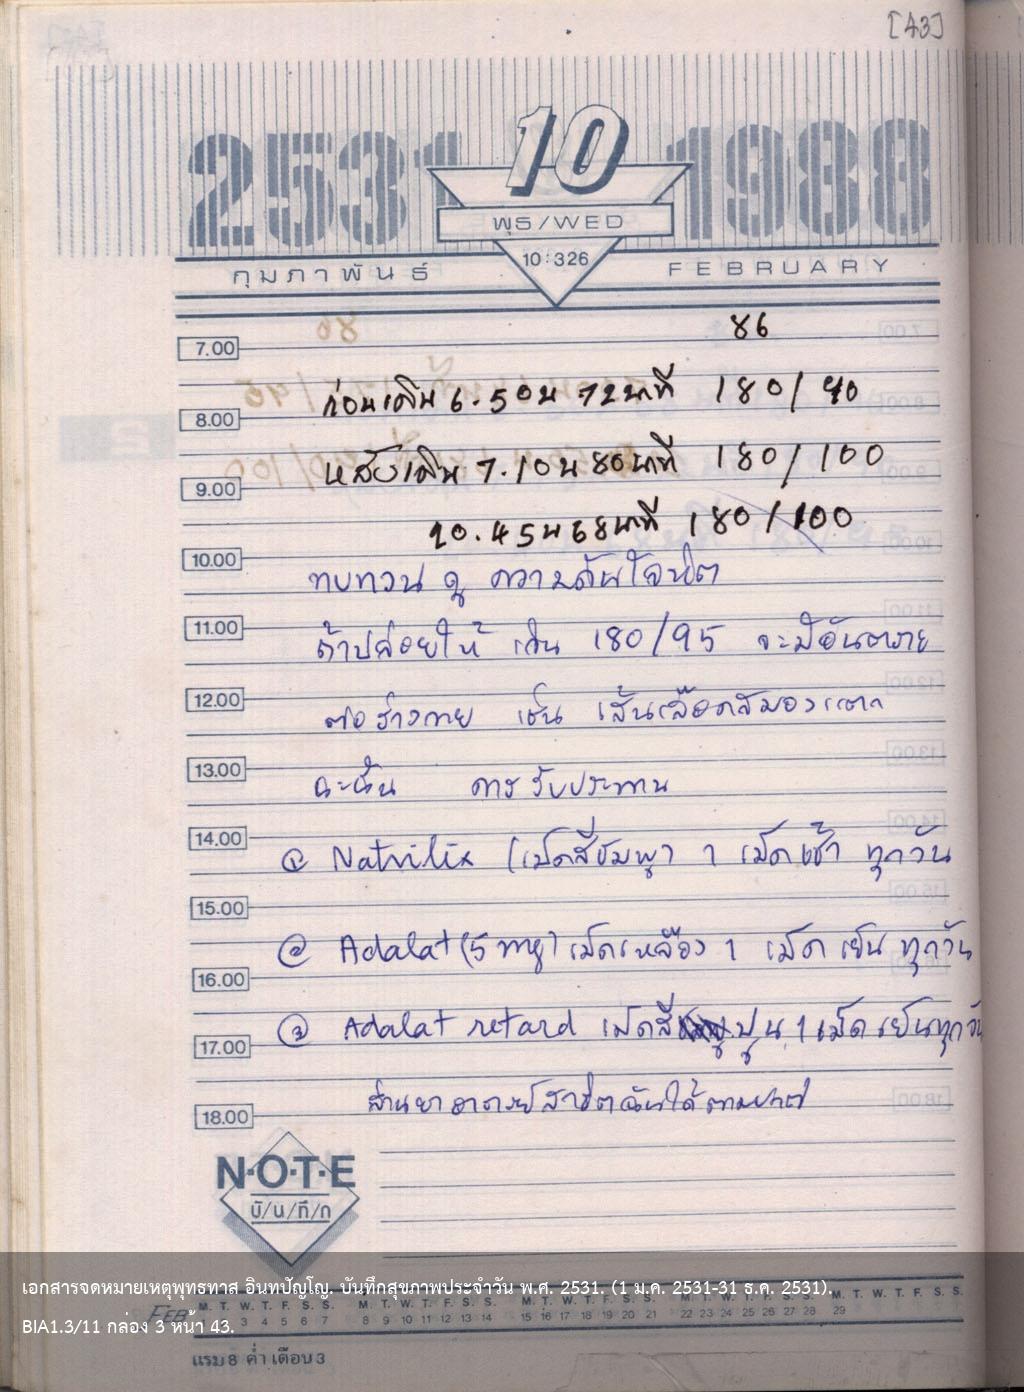 [43]
2531 10 1988
พุธ/WED
10:326
กุมภาพันธ์ FEBRUARY
86
7.00
ก่อนเดิน 6.50 น 72 นาที 180/90
8.00
หลังเดิน 7.10 น 80 นาที 180/100
9.00
10.45 น 68 นาที 180/100
10.00
ทบทวน ดู ความดันโลหิต
11.00
ถ้าปล่อยให้ เกิน 180/95 จะมีอันตราย
12.00
ต่อร่างกาย เช่น เส้นเลือดสมองแตก
13.00
ฉะนั้น ควร รับประทาน
14.00
① Natrilix (เม็ดสีชมพู) 1 เม็ด เช้า ทุกวัน
15.00
② Adalat (5 mg) เม็ดเหลือง 1 เม็ด เย็น ทุกวัน
16.00
③ Adalat retard เม็ดสี ปูน 1 เม็ด เย็นทุกวัน
17.00
ส่วนยา อาจารย์ ฉันได้ตามปกติ
18.00
N·O·T·E
บั/น/ทึ/ก
เอกสารจดหมายเหตุพุทธทาส อินทปัญโญ. บันทึกสุขภาพประจำวัน พ.ศ. 2531. (1 ม.ค. 2531-31 ธ.ค. 2531).
M. T. W. T. F. S. S. M. T. W. T. F. S. S. M. T. W. T. F. S. S. M. T. W. T. F. S. S. M. T. W. T. F. S. S.
FEB 1 2 3 4 5 6 7 8 9 10 11 12 13 14 15 16 17 18 19 20 21 22 23 24 25 26 27 28 29
BIA1.3/11 กล่อง 3 หน้า 43.
แรม 8 ค่ำ เดือน 3